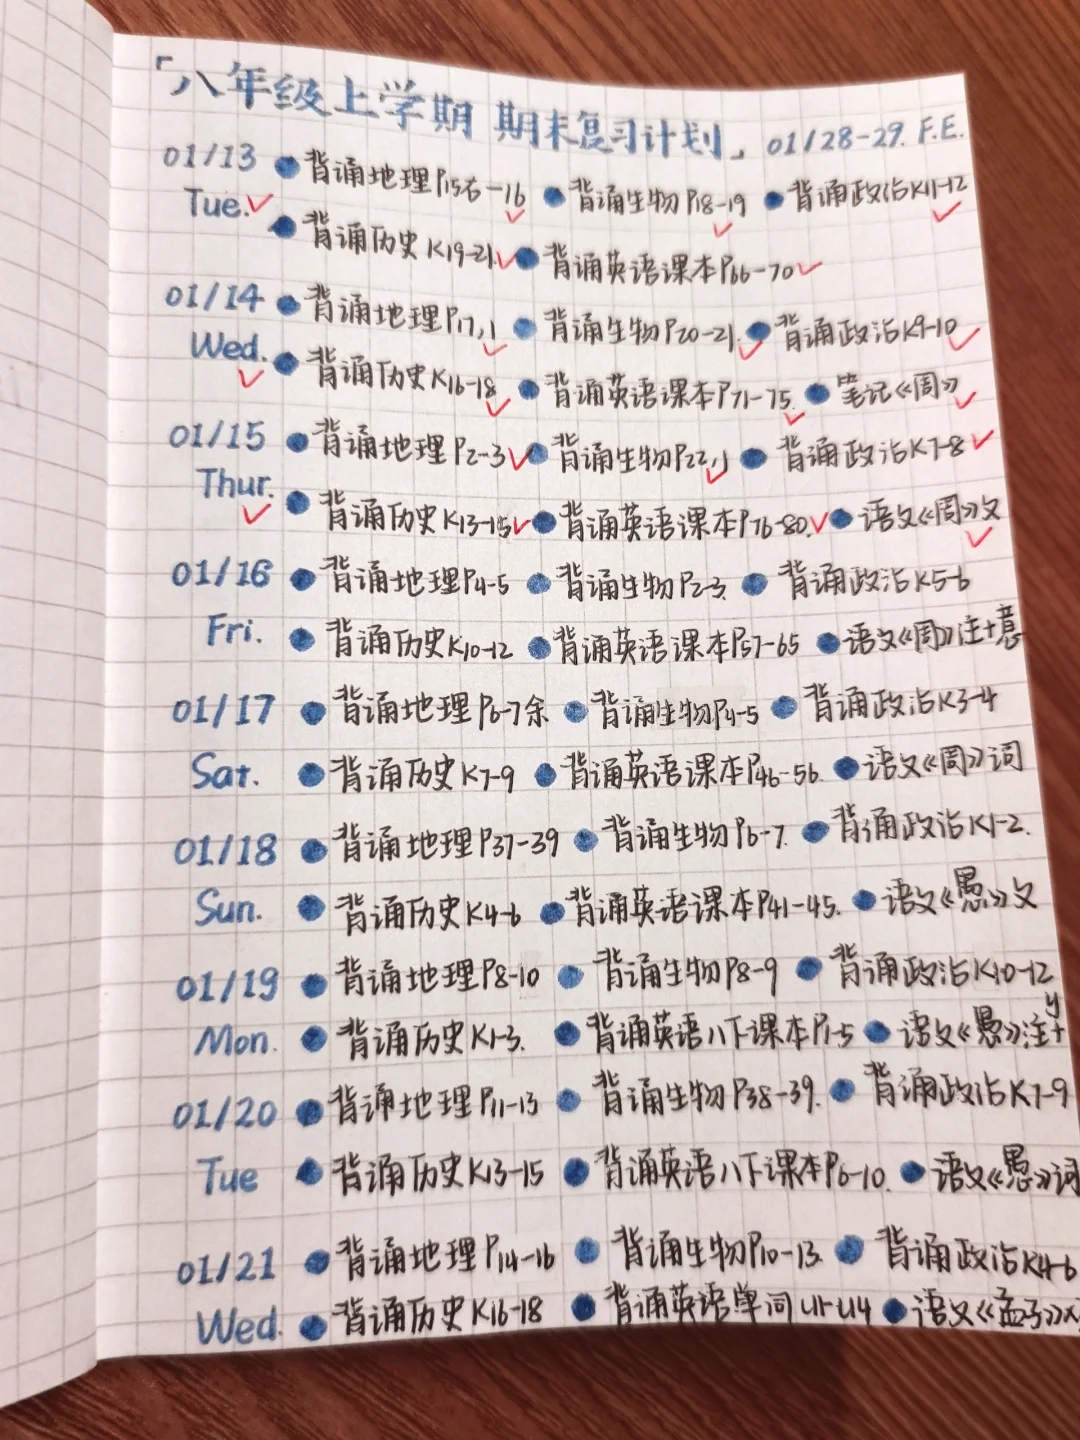 「八年级上学期 期末复习计划」 01/28-29. F.E.
01/13 ●背诵地理P15右-16 ●背诵生物P18-19 ●背诵政治K11-12
Tue. ●背诵历史K19-21. ●背诵英语课本P66-70
01/14 ●背诵地理P17,1 ●背诵生物P20-21. ●背诵政治K9-10
Wed. ●背诵历史K16-18 ●背诵英语课本P71-75. ●笔记《周》
01/15 ●背诵地理P2-3 ●背诵生物P22,1 ●背诵政治K7-8
Thur. ●背诵历史K13-15 ●背诵英语课本P76-80. ●语文《周》文
01/16 ●背诵地理P4-5 ●背诵生物P2-3. ●背诵政治K5-6
Fri. ●背诵历史K10-12 ●背诵英语课本P57-65 ●语文《周》注+意
01/17 ●背诵地理P6-7余 ●背诵生物P4-5 ●背诵政治K3-4
Sat. ●背诵历史K7-9 ●背诵英语课本P46-56. ●语文《周》词
01/18 ●背诵地理P37-39 ●背诵生物P6-7. ●背诵政治K1-2.
Sun. ●背诵历史K4-6 ●背诵英语课本P41-45. ●语文《愚》文
01/19 ●背诵地理P8-10 ●背诵生物P8-9 ●背诵政治K10-12
Mon. ●背诵历史K1-3. ●背诵英语八下课本P1-5 ●语文《愚》注+y
01/20 ●背诵地理P11-13 ●背诵生物P38-39. ●背诵政治K7-9
Tue ●背诵历史K13-15 ●背诵英语八下课本P6-10. ●语文《愚》词
01/21 ●背诵地理P14-16 ●背诵生物P10-13. ●背诵政治K4-6
Wed. ●背诵历史K16-18 ●背诵英语单词U1-U4 ●语文《孟子》文